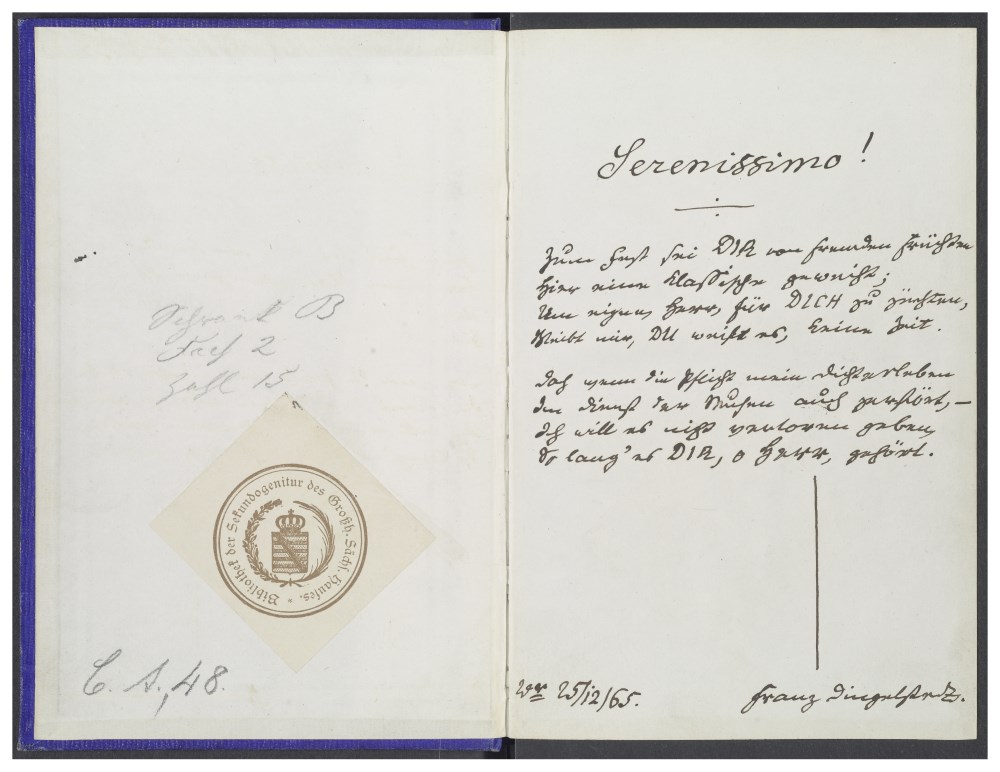 Schrank B
Fach 2
Zahl 15
Bibliothek der Sekundogenitur des Großh. Sächs. Hauses.
C. A. 48.
Serenissimo!
Zum Fest sei DIR von fremden Früchten
Hier eine klassische geweiht;
Um eigne, Herr, für DICH zu züchten,
Bleibt mir, DU weißt es, keine Zeit.
Doch wenn die Pflicht mein Dichterleben
Im Dienst der Musen auch zerstört, —
Ich will es nicht verloren geben,
So lang' es DIR, o Herr, gehört.
Wr 25/12/65.
Franz Dingelstedt.